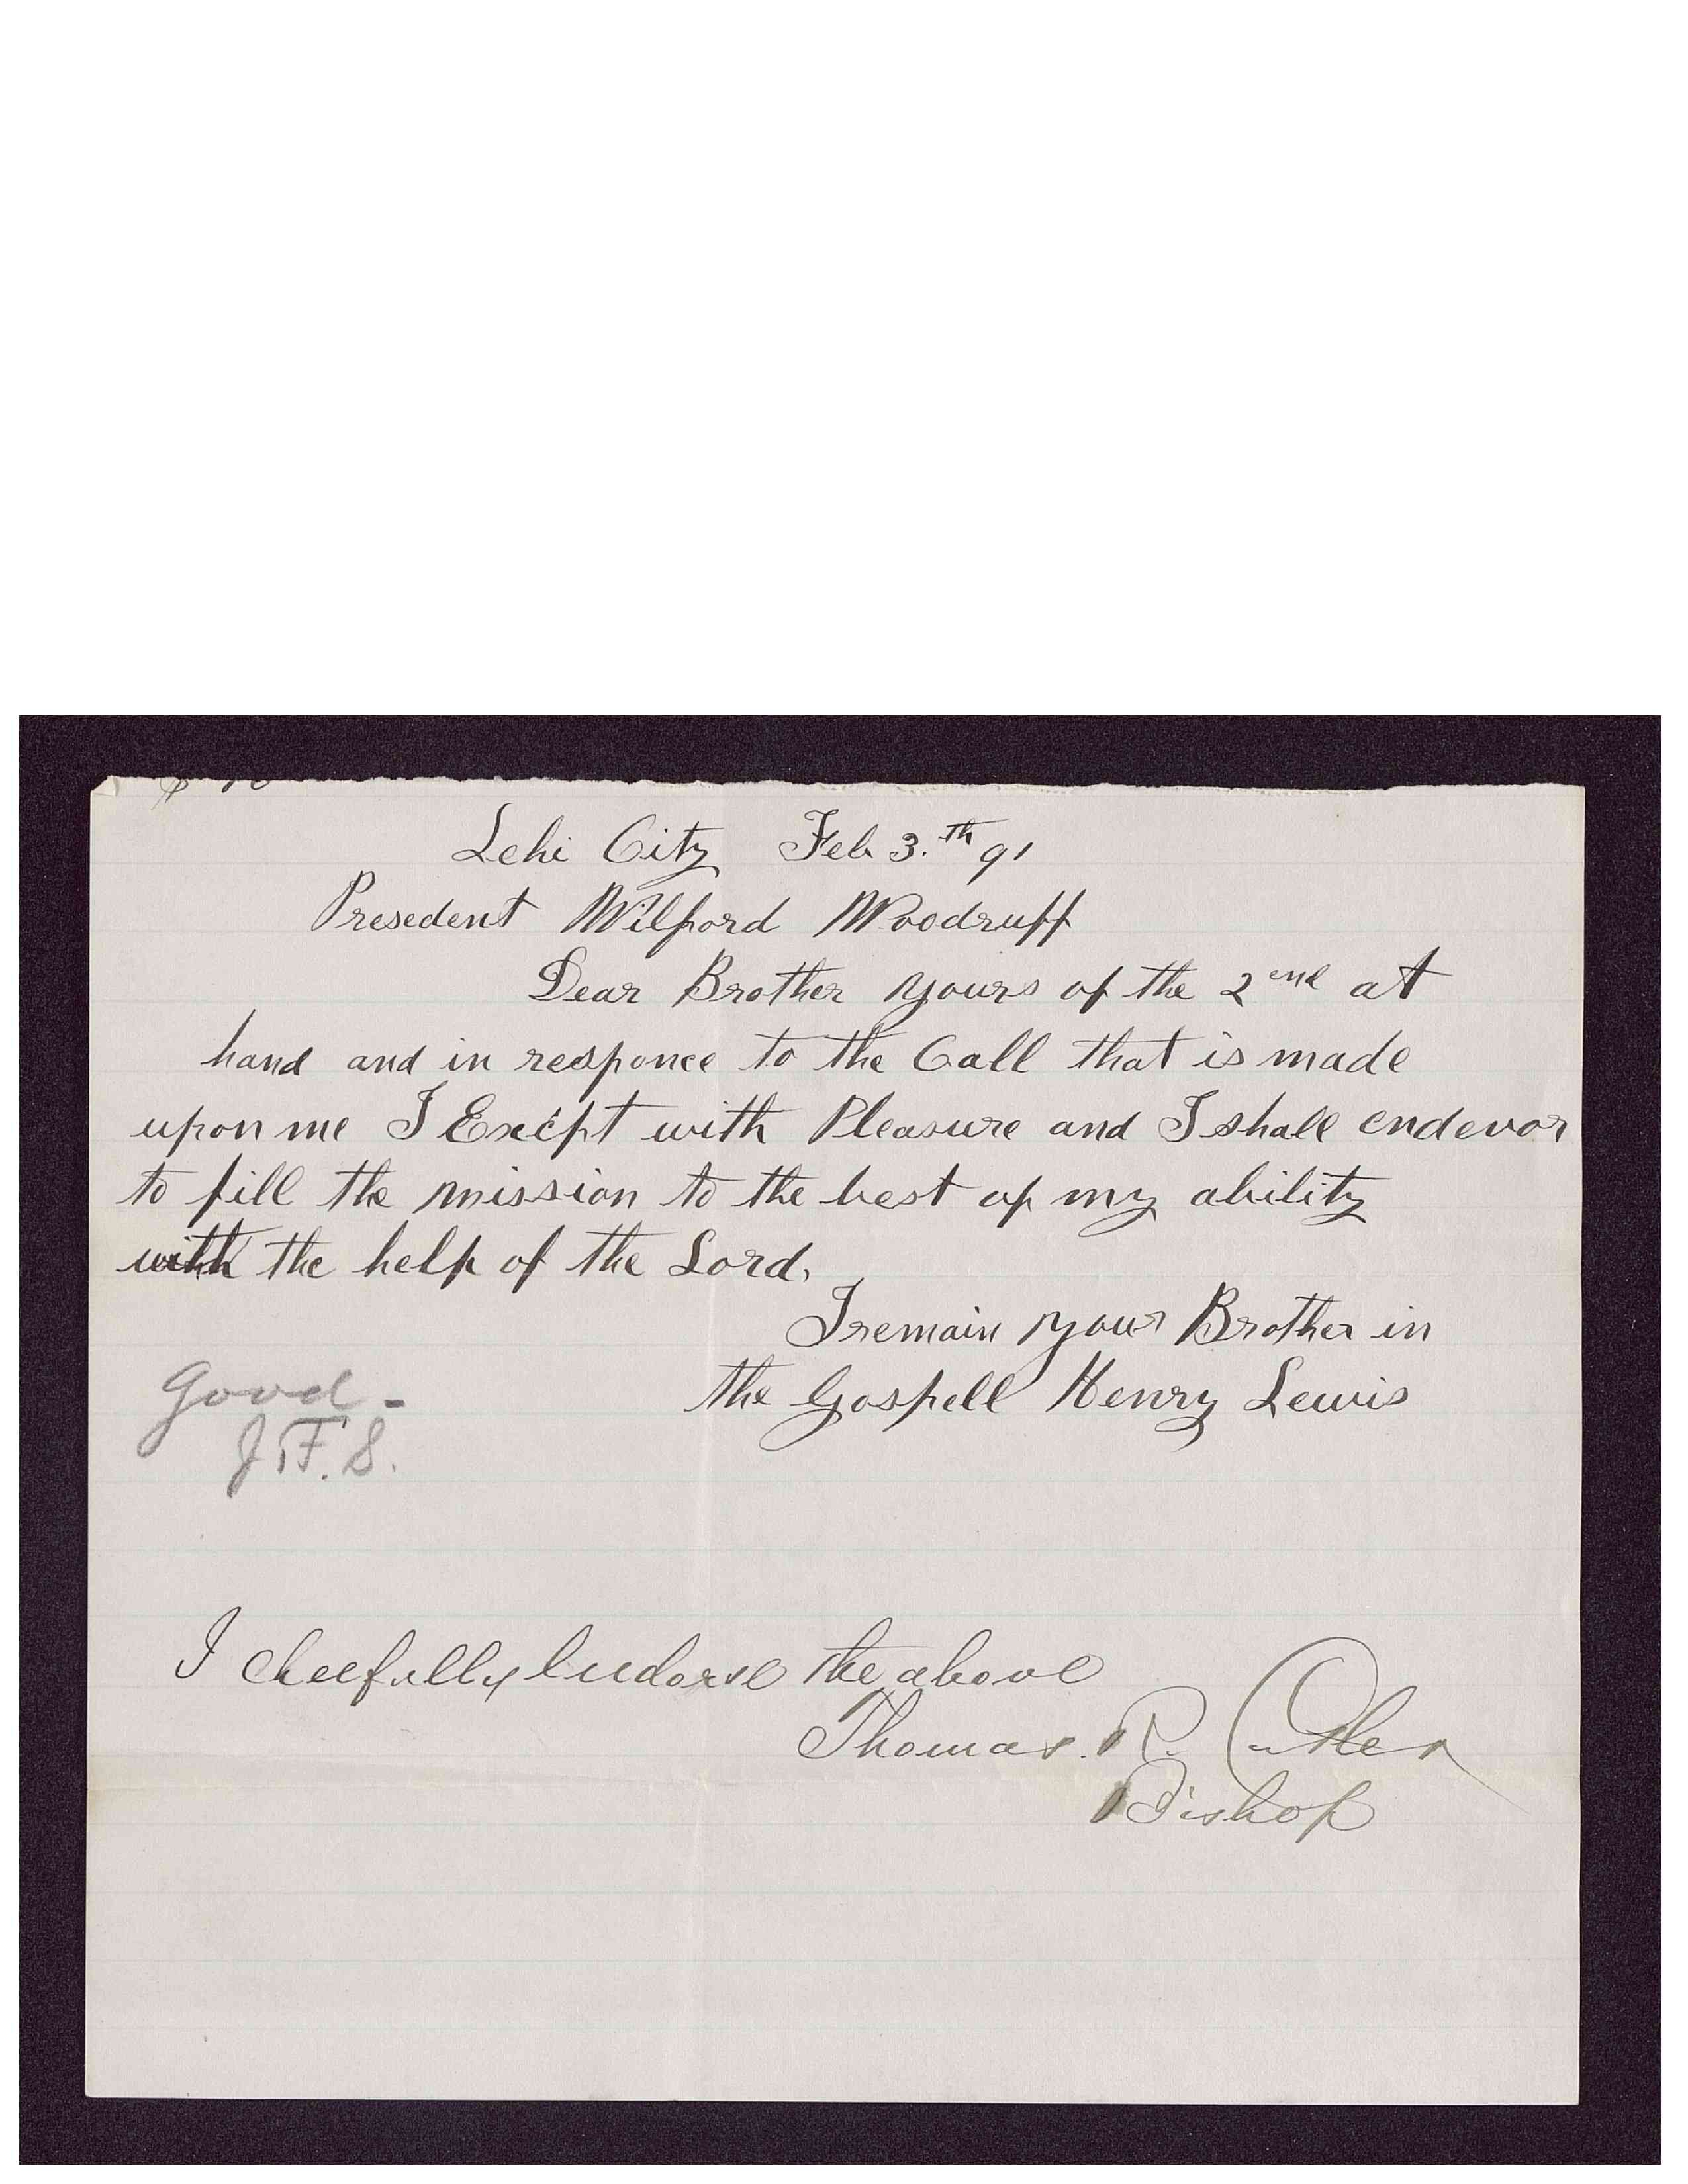 Lehi City Feb 3.th 91
Presedent Wilford Woodruff
Dear Brother yours of the 2end at
hand and in responce to the Call that is made
upon me I Except with Pleasure and I shall endevor
to fill the mission to the best of my ability
with the help of the Lord.
I remain your Brother in
the Gospell Henry Lewis
Good -
J. F. S.
I cheefully endorse the above
Thomas. R. Cutler
Bishop